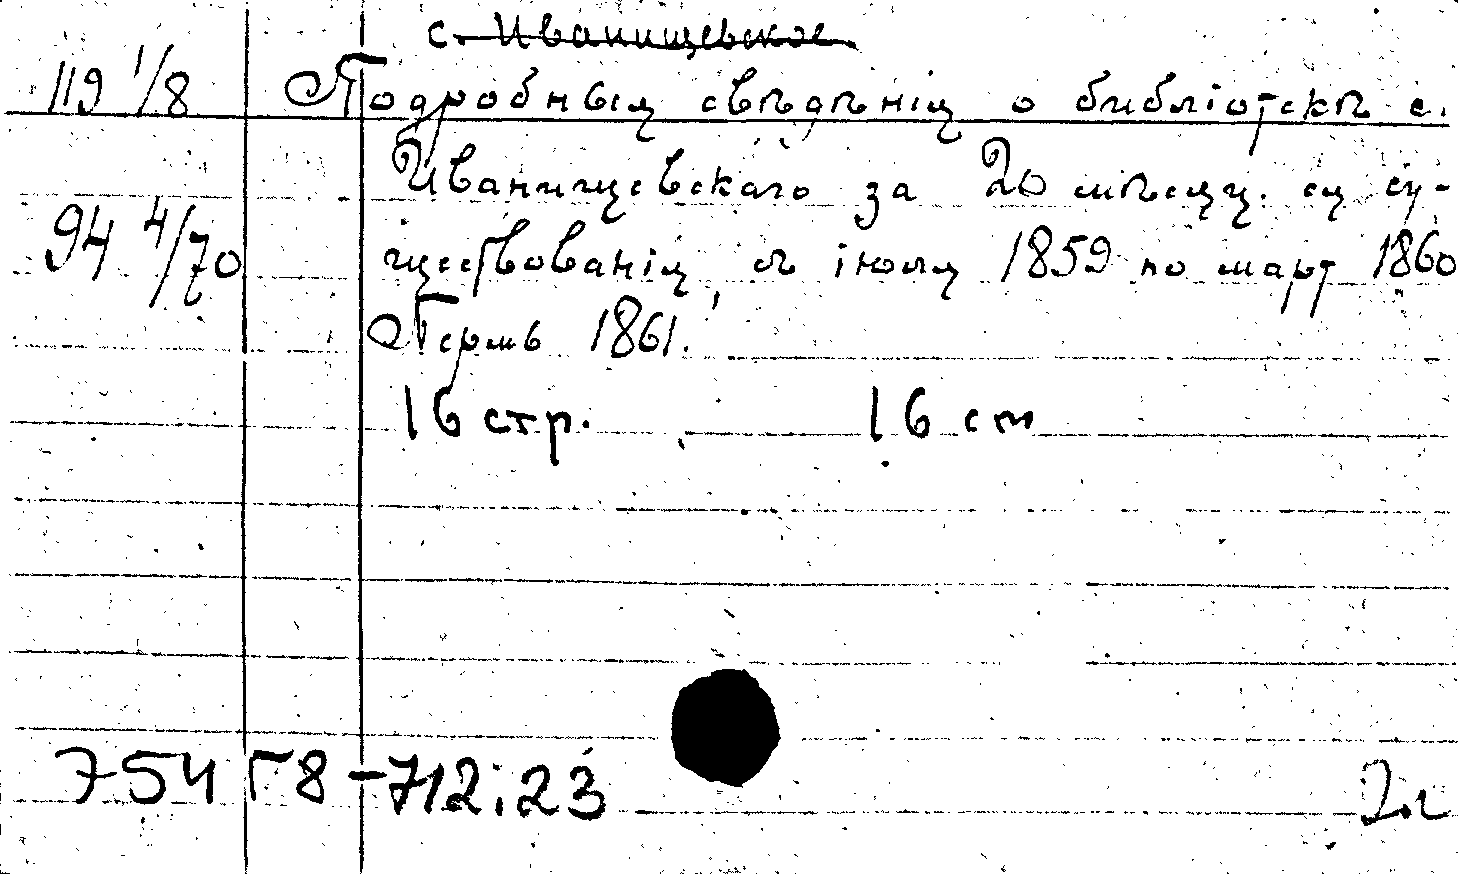 с. Иванищевское
119 1/8 Подробныя свѣдѣнія о библіотекѣ с.
Иванищевскаго за 20 мѣсяц. ея су-
94 4/70 ществованія, съ іюля 1859 по март 1860
Пермь 1861.
16 стр. 16 см
754 Г8-712:23